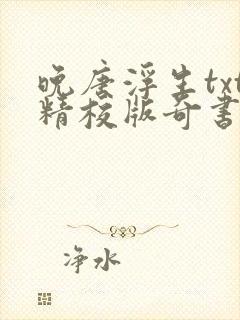 晚唐浮生txt
精校版奇书
净水